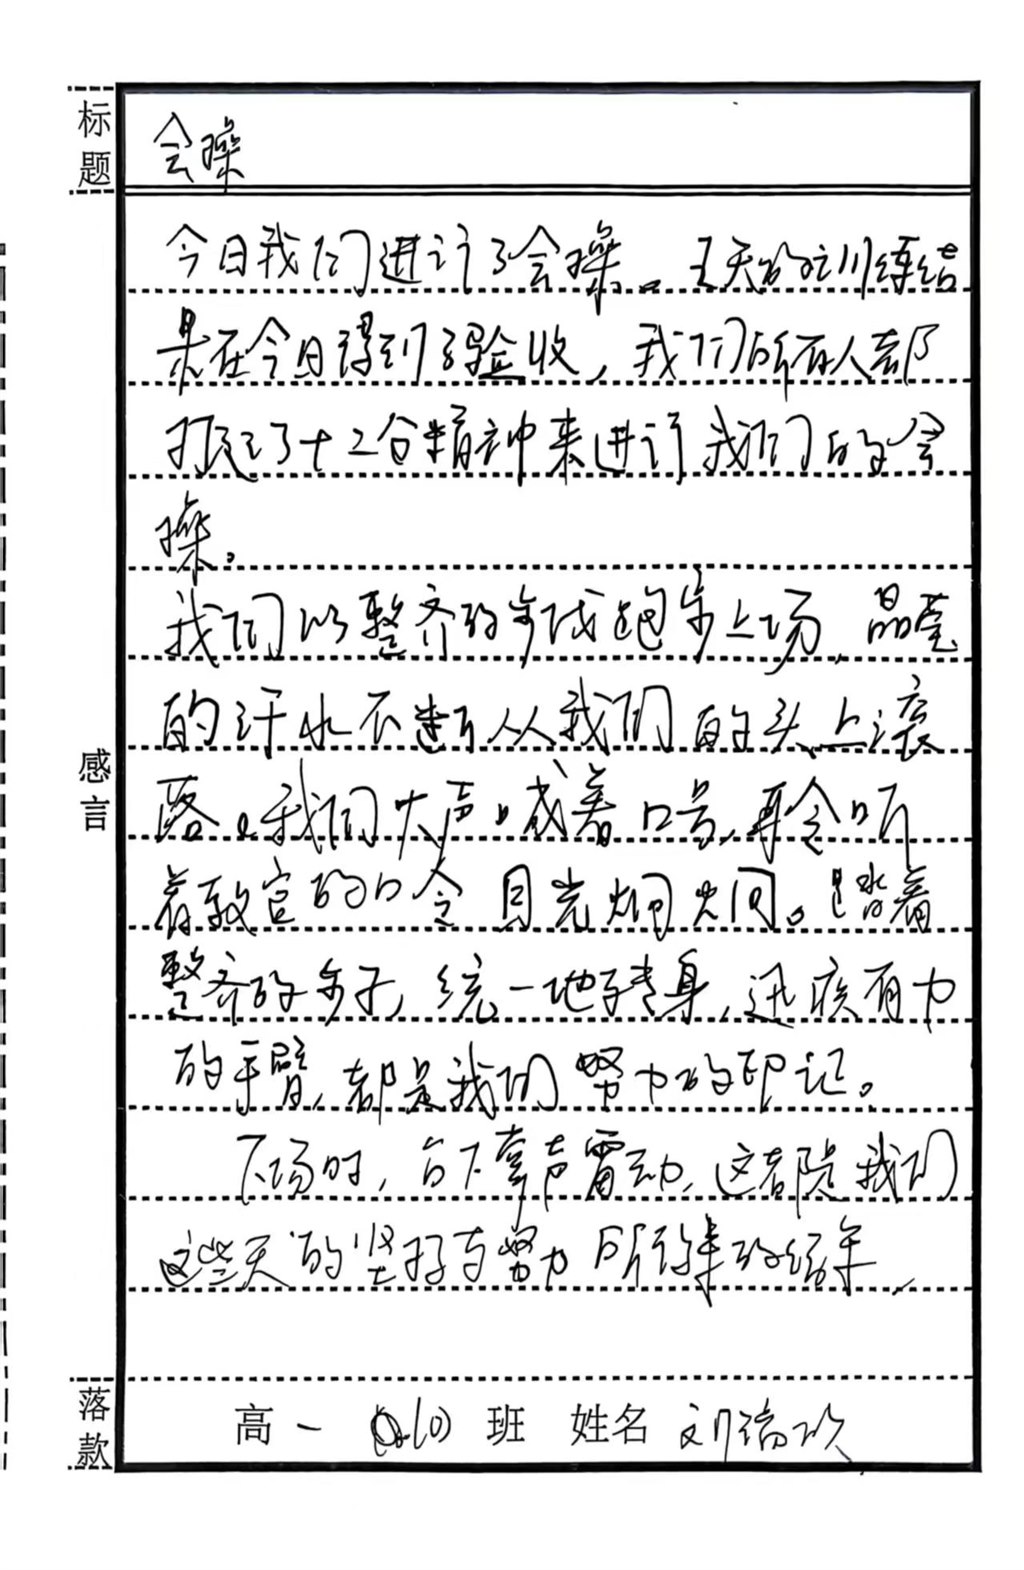 标题
会操
今日我们进行了会操。五天的训练结
果在今日得到了验收，我们所有人都
打起了十二分精神来进行我们的会
操。
我们以整齐的步伐跑步上场，晶莹
的汗水不断从我们的头上滚
落。我们大声喊着口号，再令听
着教官的口令 目光炯炯。踏着
整齐的步子，统一地转身，迅疾有力
的手臂，都是我们努力的印记。
下场时，台下掌声雷动，这都是我们
这些天的坚持与努力所得来的结果，
感言
落款
高一 (10) 班 姓名 刘瑞欣